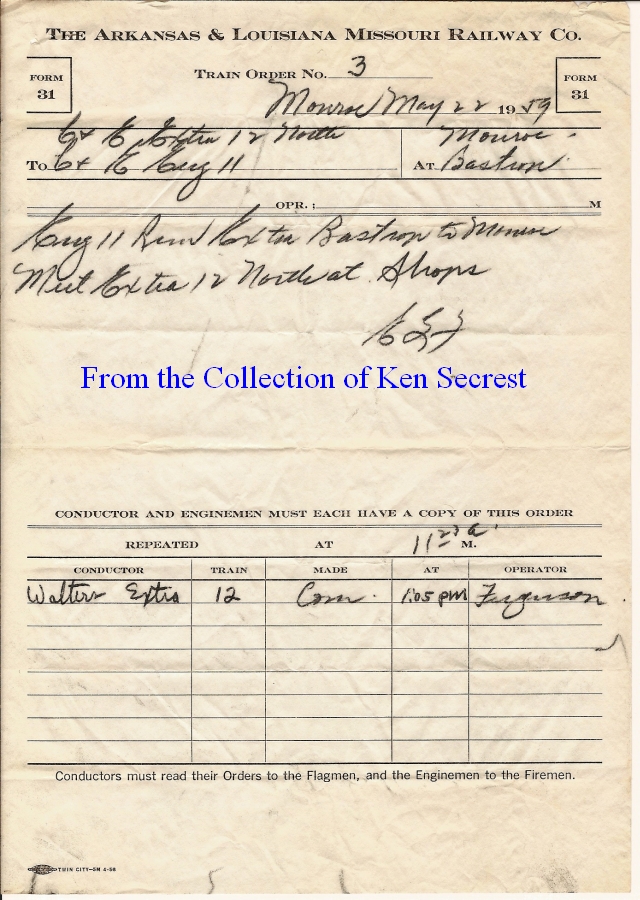 The Arkansas & Louisiana Missouri Railway Co.
FORM 31
Train Order No. 3
FORM 31
Monroe May 22 1959
C+E Extra 12 North
Monroe
To C+E Eng 11
At Bastrop
OPR.; M
Eng 11 Run Extra Bastrop to Monroe
Meet Extra 12 North at Shops
From the Collection of Ken Secrest
CONDUCTOR AND ENGINEMEN MUST EACH HAVE A COPY OF THIS ORDER
REPEATED AT 11 23 a. M.
CONDUCTOR TRAIN MADE AT OPERATOR
Walters Extra 12 Com. 1:05 PM Ferguson
Conductors must read their Orders to the Flagmen, and the Enginemen to the Firemen.
TWIN CITY—5M 4-58